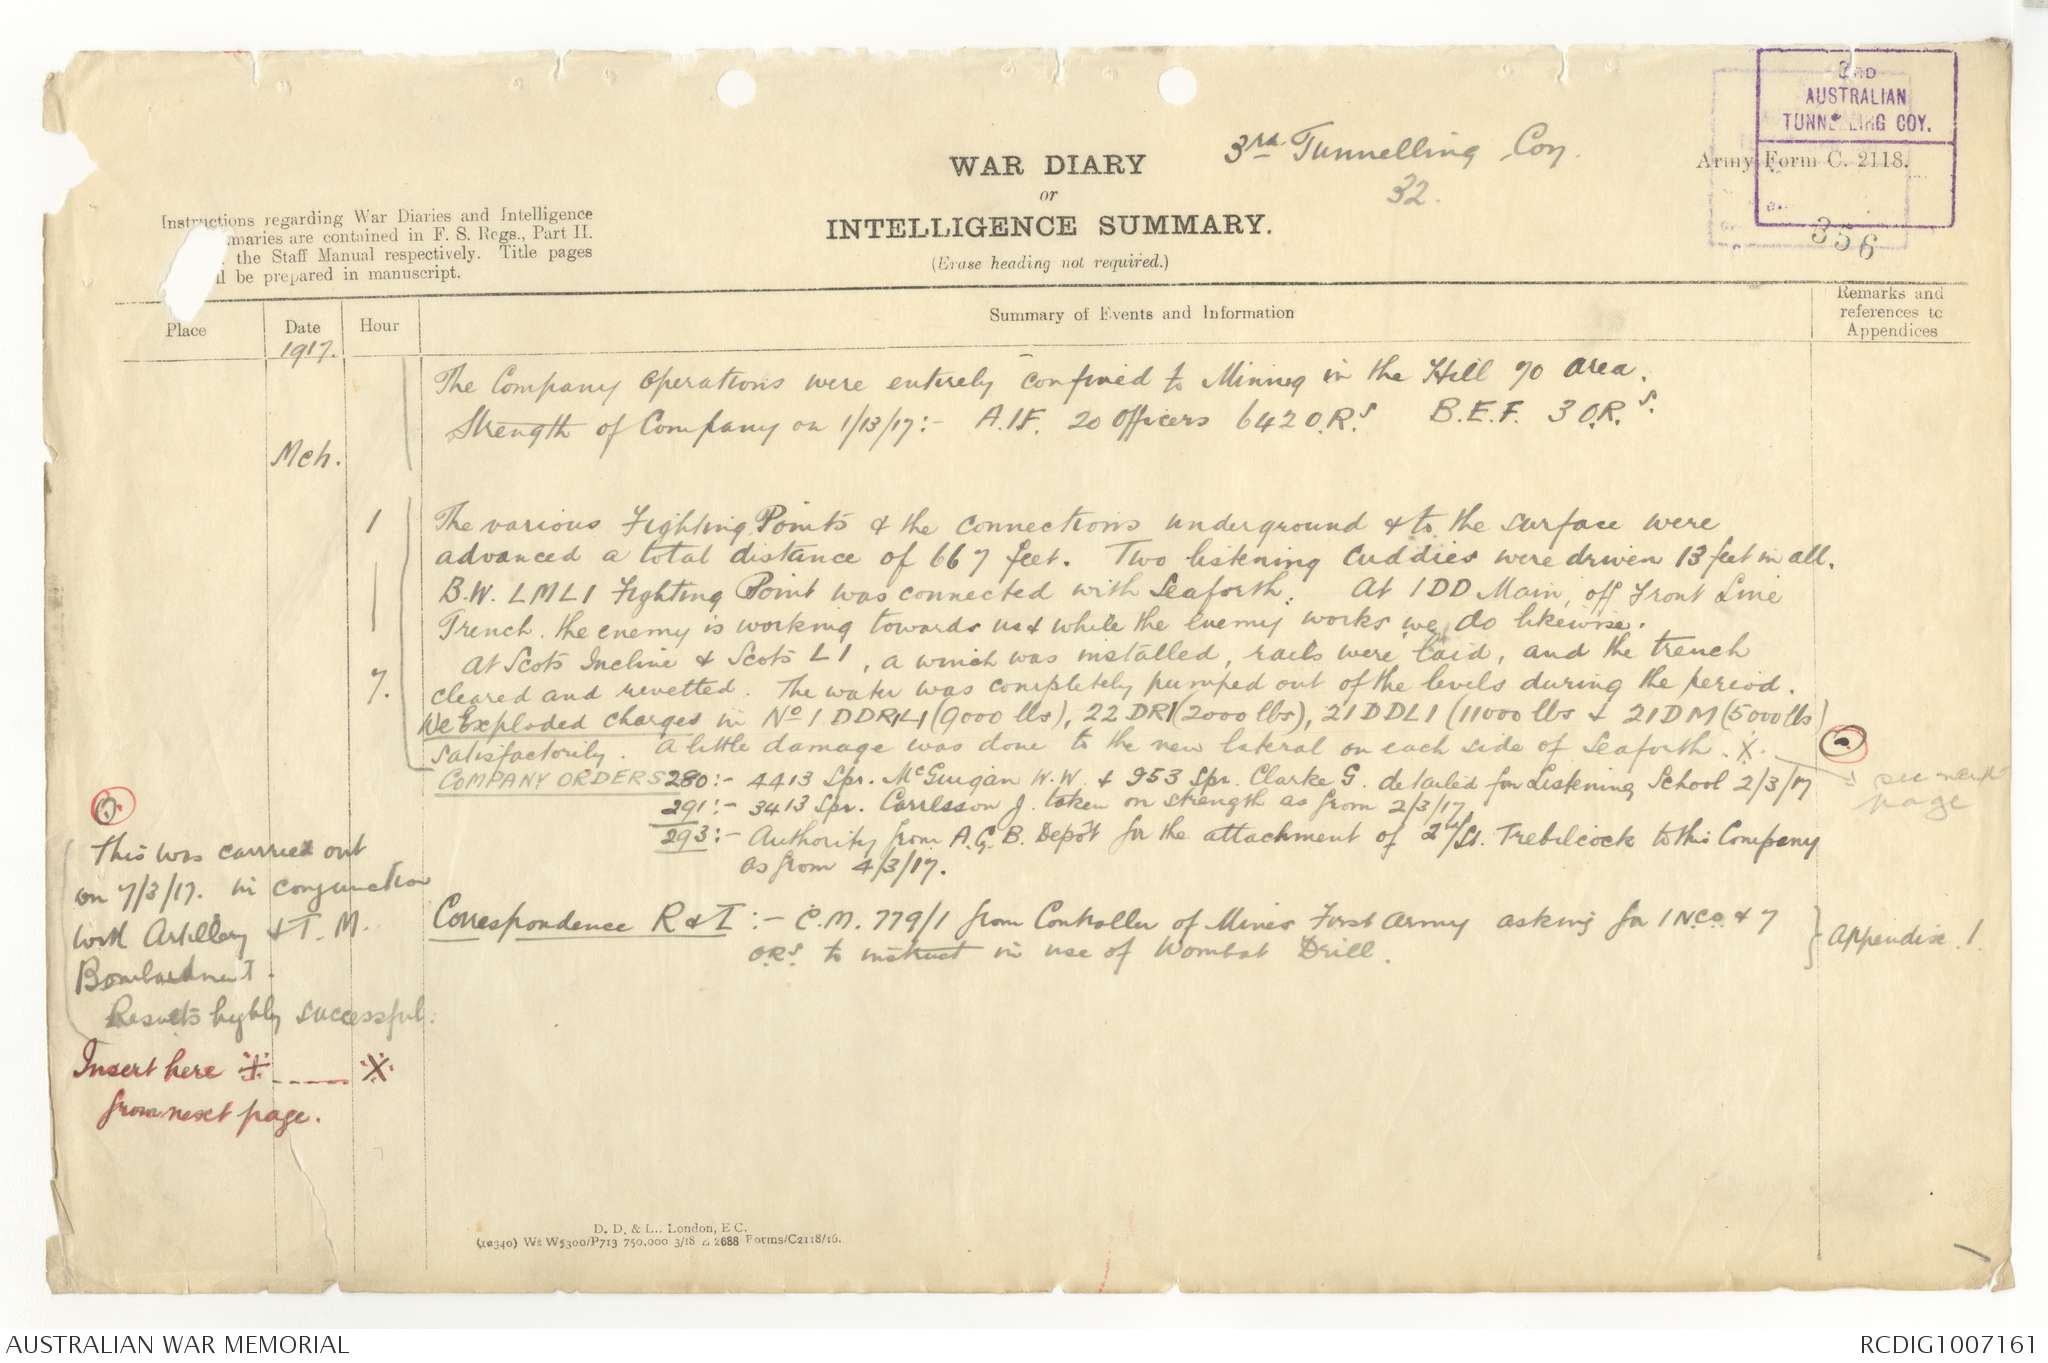 3RD
AUSTRALIAN
TUNNELLING COY.
3rd. Tunnelling Coy.
32.
356
Army Form C. 2118.
WAR DIARY
or
INTELLIGENCE SUMMARY.
(Erase heading not required.)
Instructions regarding War Diaries and Intelligence
maries are contained in F. S. Regs., Part II.
the Staff Manual respectively. Title pages
ll be prepared in manuscript.
Place
Date
Hour
Summary of Events and Information
Remarks and
references to
Appendices
1917.
The Company operations were entirely confined to Mining in the Hill 70 area.
Strength of Company on 1/13/17:- A.I.F. 20 Officers 642 O.Rs. B.E.F. 3 O.R.s.
Mch.
1
The various Fighting Points & the connections underground & to the surface were
advanced a total distance of 667 feet. Two listening cuddies were driven 13 feet in all.
B.W. LML1 Fighting Point was connected with Seaforth. At 1DD Main, off Front Line
Trench. the enemy is working towards us & while the Enemy works we do likewise.
7.
At Scots Incline & Scots L1, a winch was installed, rails were laid, and the trench
cleared and revetted. The water was completely pumped out of the levels during the period.
We Exploded charges in No 1 DDR1L1 (9000 lbs), 22 DR1 (2000 lbs), 21DDL1 (11000 lbs & 21DM (5000 lbs)
satisfactorily. A little damage was done to the new lateral on each side of Seaforth. X.
see next
page
COMPANY ORDERS 280:- 4413 Spr. McGuigan W.W. & 953 Spr. Clarke G. detailed for Listening School 2/3/17
291:- 3413 Spr. Carlsson J. taken on strength as from 2/3/17
293:- Authority from A.G.B. Depôt for the attachment of 2/Lt. Trebilcock to this Company
as from 4/3/17.
Correspondence R & I :- C.M. 779/1 from Controller of Mines First Army asking for 1 NCO & 7
ORs. to instruct in use of Wombat Drill.
Appendix 1.
This was carried out
on 7/3/17. in conjunction
with Artillery & T.M.
Bombardment.
Results highly successful.
Insert here ※ ---- ※
from next page.
D. D. & L., London, E.C.
(10340) Wt W5300/P713 750,000 3/18 E 2688 Forms/C2118/16.
AUSTRALIAN WAR MEMORIAL
RCDIG1007161